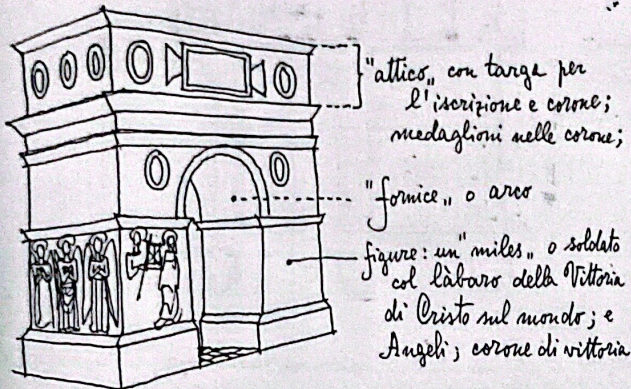 "attico„ con targa per
l'iscrizione e corone;
medaglioni nelle corone;
"fornice„ o arco
figure: un "miles„ o soldato
col làbaro della Vittoria
di Cristo sul mondo; e
Angeli; corone di vittoria